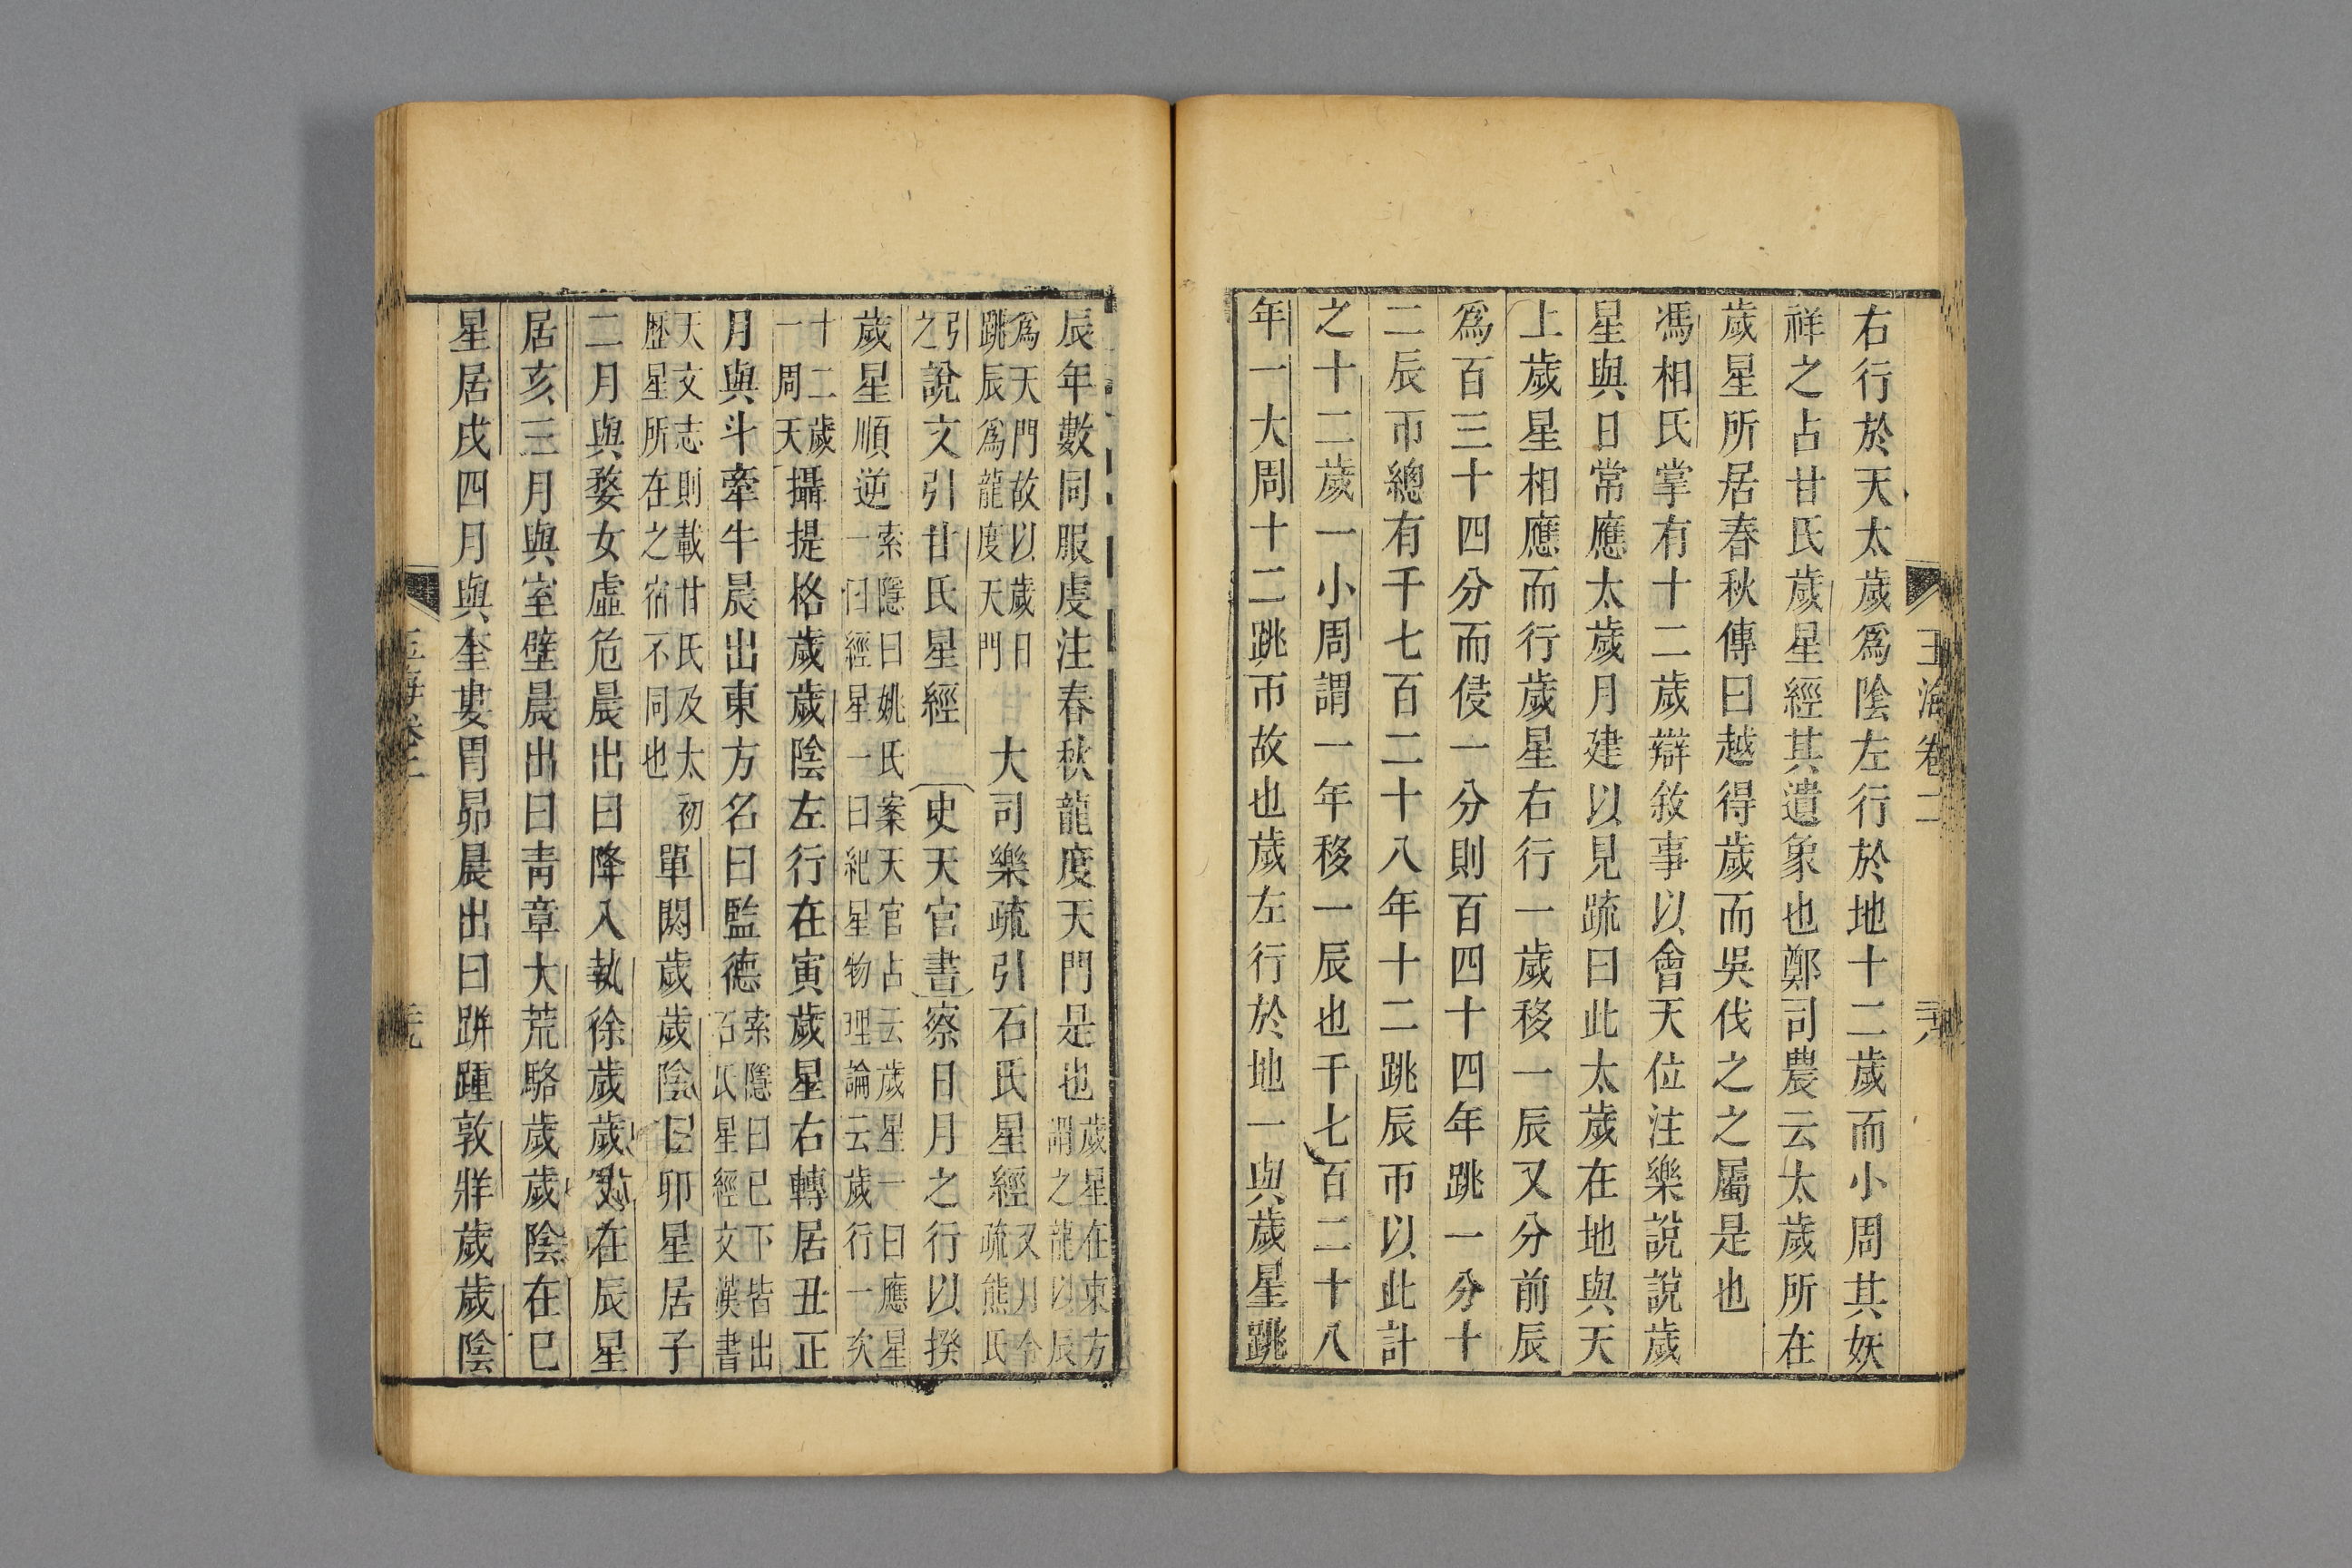 玉海卷二
右行於天太歲爲陰左行於地十二歲而小周其妖
祥之占甘氏歲星經其遺象也鄭司農云太歲所在
歲星所居春秋傳曰越得歲而吳伐之之屬是也
馮相氏掌有十二歲辯敘事以會天位注樂說說歲
星與日常應太歲月建以見疏曰此太歲在地與天
上歲星相應而行歲星右行一歲移一辰又分前辰
爲百三十四分而侵一分則百四十四年跳一分十
二辰帀總有千七百二十八年十二跳辰帀以此計
之十二歲一小周謂一年移一辰也千七百二十八
年一大周十二跳帀故也歲左行於地一與歲星跳
辰年數同服虔注春秋龍度天門是也歲星在東方
謂之龍以辰
爲天門故以歲日
跳辰爲龍度天門
大司樂疏引石氏星經又月令
疏熊氏
引
之
說文引甘氏星經
史天官書察日月之行以揆
歲星順逆索隱曰姚氏案天官占云歲星一曰應星
一曰經星一曰紀星物理論云歲行一次
十二歲
一周天
攝提格歲歲陰左行在寅歲星右轉居丑正
月與斗牽牛晨出東方名曰監德索隱曰已下皆出
石氏星經文漢書
天文志則載甘氏及太初
歷星所在之宿不同也
單閼歲歲陰在卯星居子
二月與婺女虛危晨出曰降入執徐歲歲陰在辰星
居亥三月與室壁晨出曰青章大荒駱歲歲陰在巳
星居戌四月與奎婁胃昴晨出曰跰踵敦牂歲歲陰